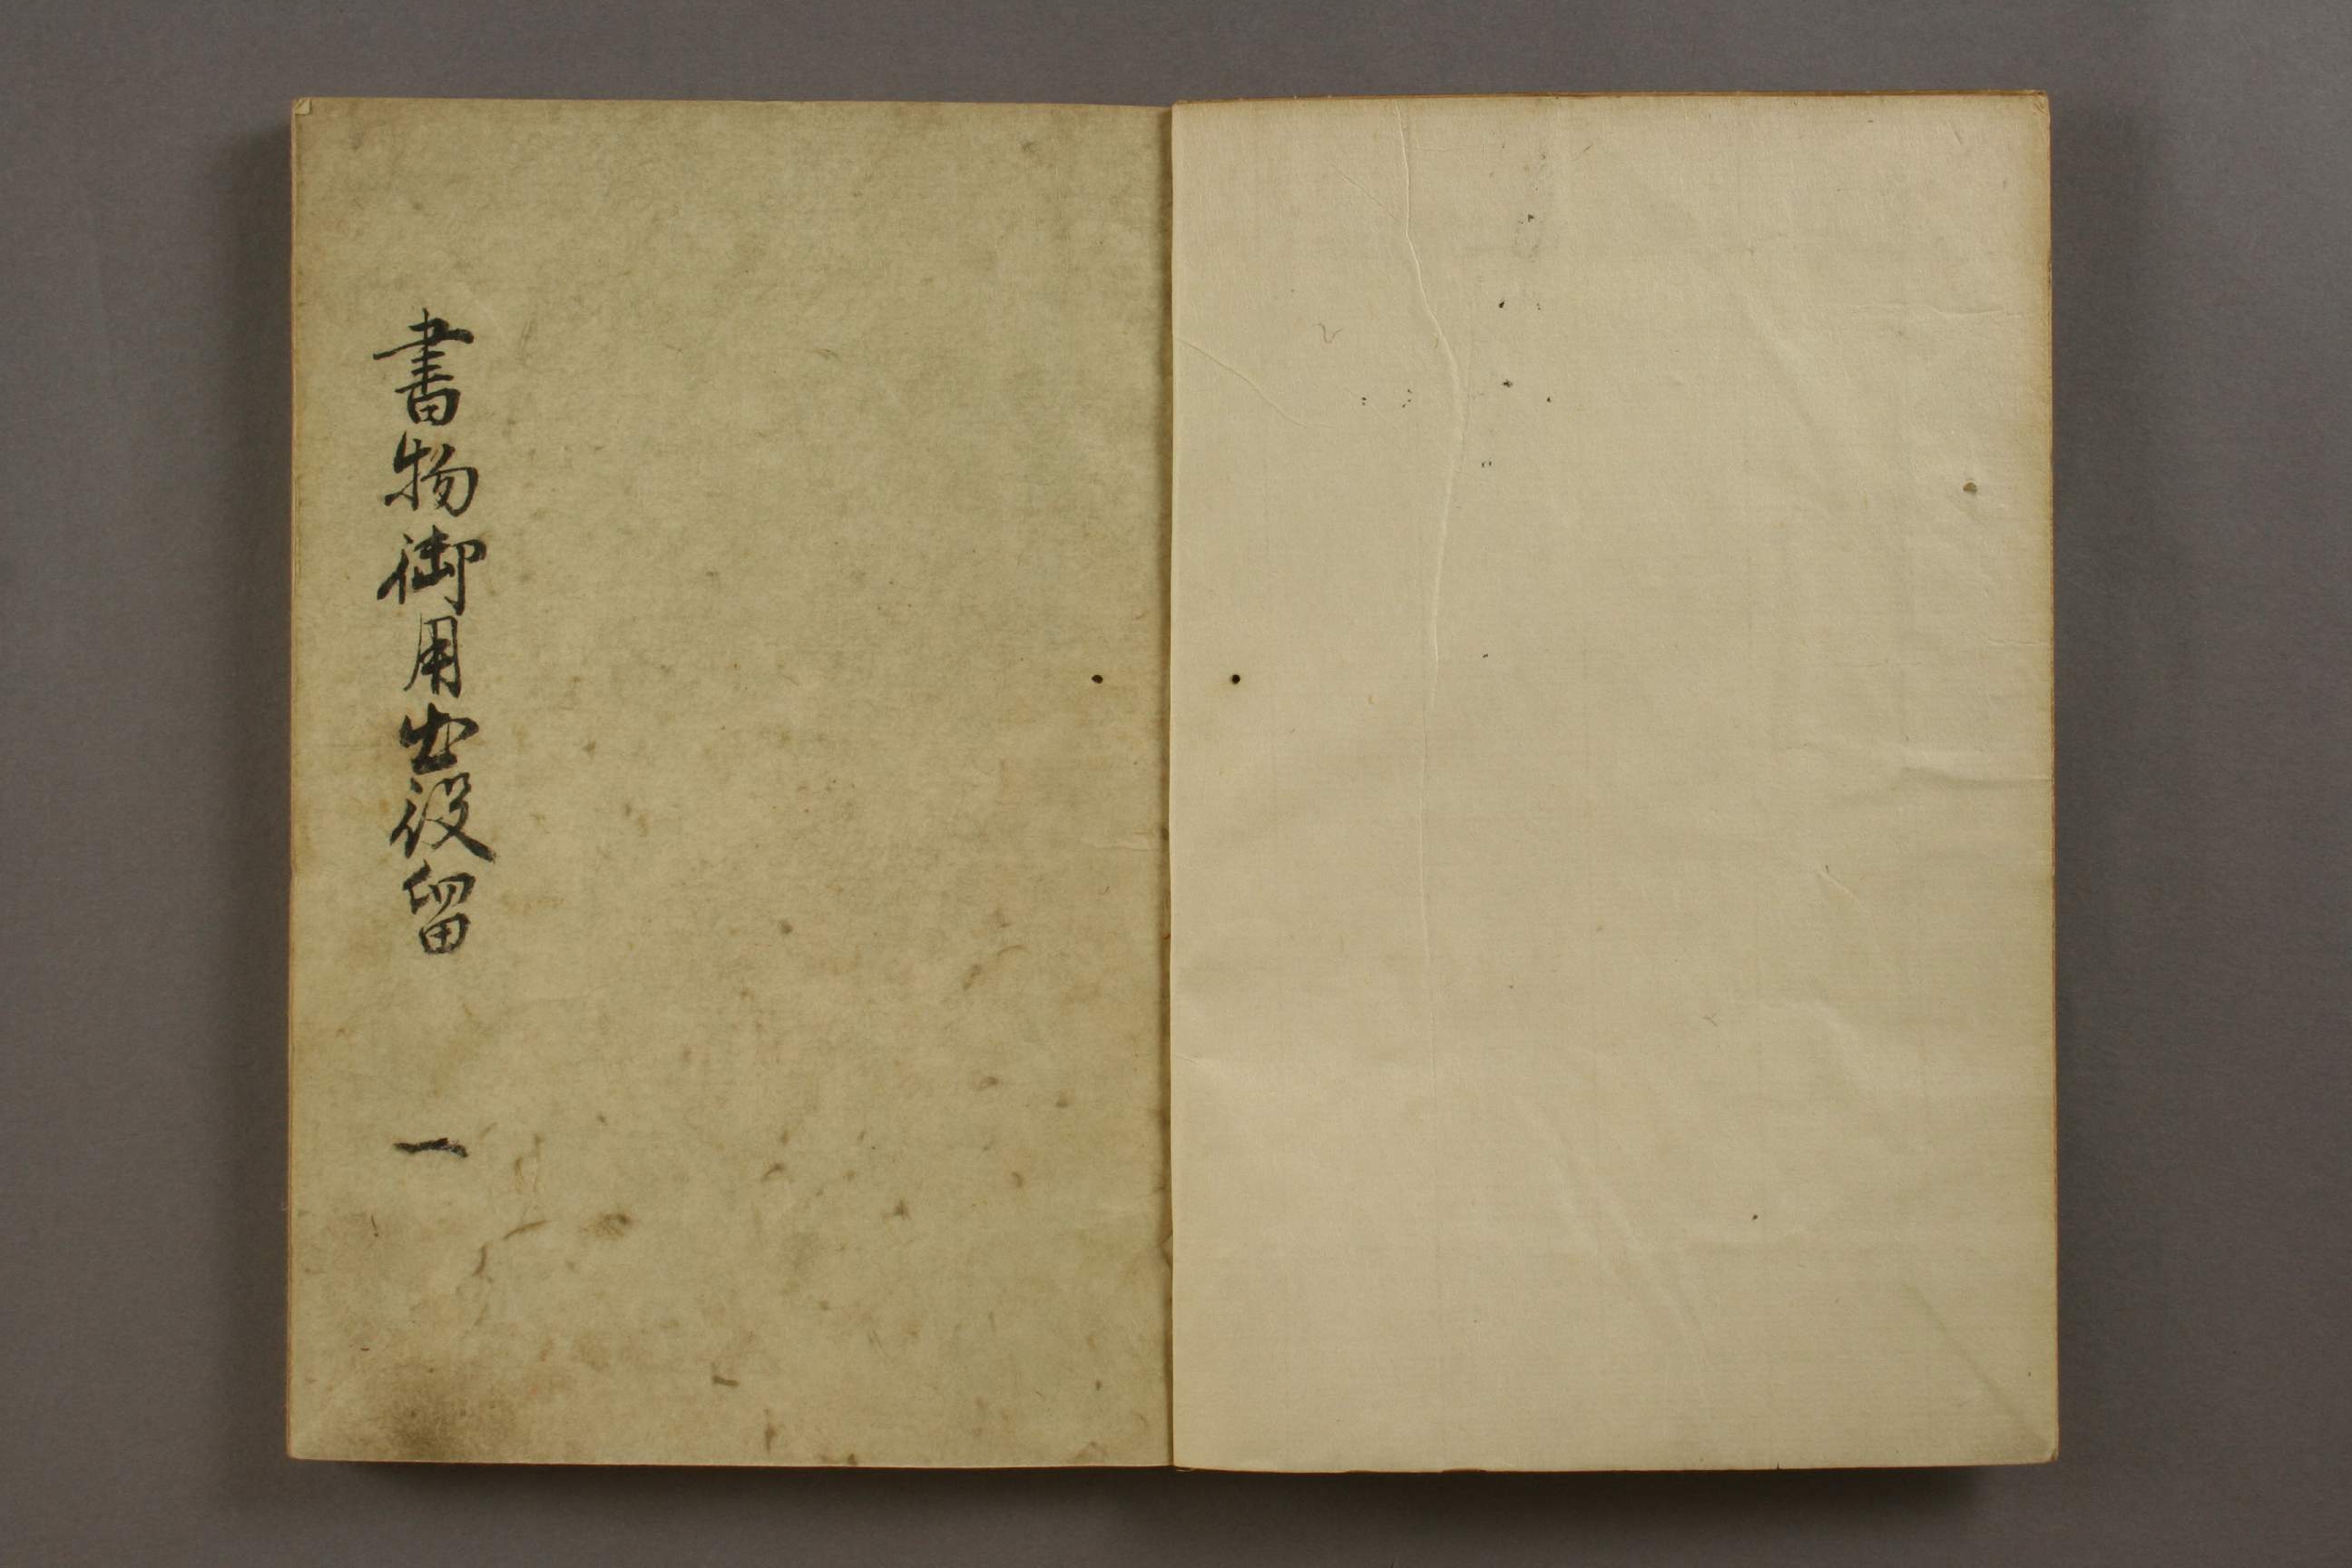 書物御用出役留 一